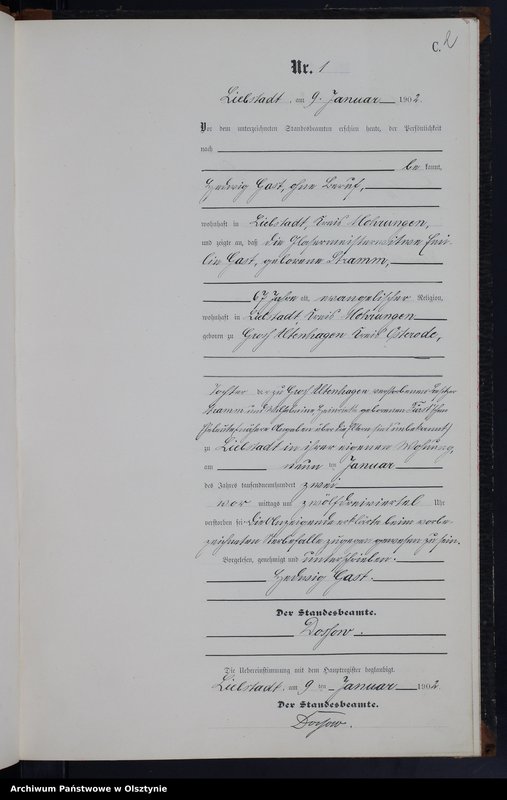 C. 2
Nr. 1
Liebstadt, am 9. Januar 1902.
Vor dem unterzeichneten Standesbeamten erschien heute, der Persönlichkeit
nach
be kannt,
Hedwig Gast, ohne Beruf,
wohnhaft in Liebstadt, Kreis Mohrungen,
und zeigte an, daß die Glasermeisterwitwe Emi-
lie Gast, geborene Stramm,
67 Jahre alt, evangelischer Religion,
wohnhaft in Liebstadt, Kreis Mohrungen
geboren zu Groß Altenhagen Kreis Osterode,
Tochter der zu Groß Altenhagen verstorbenen
Stramm und Wilhelmine Heinriette geborenen
nähere Angaben über die Eltern sind unbekannt)
zu Liebstadt in ihrer eigenen Wohnung,
am neun ten Januar
des Jahres tausendneunhundert zwei
vor mittags um zwölfdreiviertel Uhr
verstorben sei. Die Anzeigende erklärte beim vorbe-
zeichneten Sterbefalle zugegen gewesen zu sein.
Vorgelesen, genehmigt und unterschrieben.
Hedwig Gast.
Der Standesbeamte.
Dossow.
Die Uebereinstimmung mit dem Hauptregister beglaubigt.
Liebstadt, am 9 ten Januar 1902.
Der Standesbeamte.
Dossow.
Archiwum Państwowe w Olsztynie